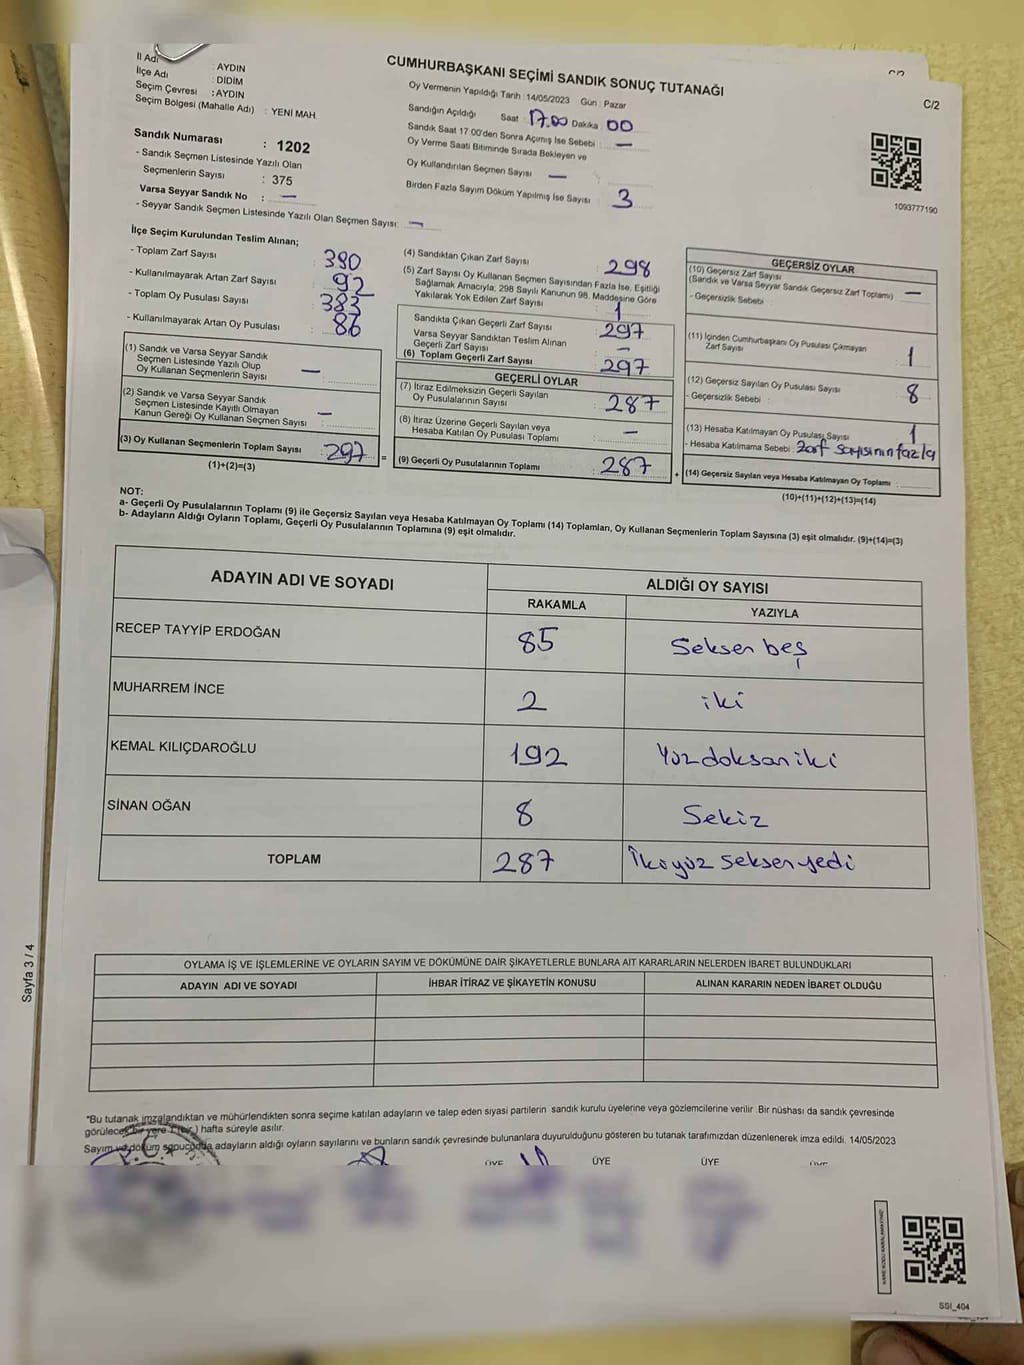 İl Adı : AYDIN
İlçe Adı : DİDİM
Seçim Çevresi : AYDIN
Seçim Bölgesi (Mahalle Adı) : YENİ MAH
Sandık Numarası : 1202
- Sandık Seçmen Listesinde Yazılı Olan
Seçmenlerin Sayısı : 375
Varsa Seyyar Sandık No : —
- Seyyar Sandık Seçmen Listesinde Yazılı Olan Seçmen Sayısı: —
CUMHURBAŞKANI SEÇİMİ SANDIK SONUÇ TUTANAĞI
Oy Vermenin Yapıldığı Tarih : 14/05/2023 Gün : Pazar
Sandığın Açıldığı Saat : 17.00 Dakika : 00
Sandık Saat 17.00'den Sonra Açımış İse Sebebi : —
Oy Verme Saati Bitiminde Sırada Bekleyen ve
Oy Kullandırılan Seçmen Sayısı : —
Birden Fazla Sayım Döküm Yapılmış İse Sayısı : 3
C/2
1093777190
İlçe Seçim Kurulundan Teslim Alınan;
- Toplam Zarf Sayısı : 390
- Kullanılmayarak Artan Zarf Sayısı : 92
- Toplam Oy Pusulası Sayısı : 383
- Kullanılmayarak Artan Oy Pusulası : 86
(1) Sandık ve Varsa Seyyar Sandık
Seçmen Listesinde Yazılı Olup
Oy Kullanan Seçmenlerin Sayısı : —
(2) Sandık ve Varsa Seyyar Sandık
Seçmen Listesinde Kayıtlı Olmayan
Kanun Gereği Oy Kullanan Seçmen Sayısı : —
(3) Oy Kullanan Seçmenlerin Toplam Sayısı : 297
(1)+(2)=(3)
(4) Sandıktan Çıkan Zarf Sayısı : 298
(5) Zarf Sayısı Oy Kullanan Seçmen Sayısından Fazla İse, Eşitliği
Sağlamak Amacıyla, 298 Sayılı Kanunun 98. Maddesine Göre
Yakılarak Yok Edilen Zarf Sayısı : 1
Sandıkta Çıkan Geçerli Zarf Sayısı : 297
Varsa Seyyar Sandıktan Teslim Alınan
Geçerli Zarf Sayısı : —
(6) Toplam Geçerli Zarf Sayısı : 297
GEÇERLİ OYLAR
(7) İtiraz Edilmeksizin Geçerli Sayılan
Oy Pusulalarının Sayısı : 287
(8) İtiraz Üzerine Geçerli Sayılan veya
Hesaba Katılan Oy Pusulası Toplamı : —
= (9) Geçerli Oy Pusulalarının Toplamı : 287
GEÇERSİZ OYLAR
(10) Geçersiz Zarf Sayısı
(Sandık ve Varsa Seyyar Sandık Geçersiz Zarf Toplamı) : —
- Geçersizlik Sebebi :
(11) İçinden Cumhurbaşkanı Oy Pusulası Çıkmayan
Zarf Sayısı : 1
(12) Geçersiz Sayılan Oy Pusulası Sayısı : 8
- Geçersizlik Sebebi :
(13) Hesaba Katılmayan Oy Pusulası Sayısı : 1
- Hesaba Katılmama Sebebi : Zarf sayısının fazla
+ (14) Geçersiz Sayılan veya Hesaba Katılmayan Oy Toplamı :
(10)+(11)+(12)+(13)=(14)
NOT:
a- Geçerli Oy Pusulalarının Toplamı (9) ile Geçersiz Sayılan veya Hesaba Katılmayan Oy Toplamı (14) Toplamları, Oy Kullanan Seçmenlerin Toplam Sayısına (3) eşit olmalıdır. (9)+(14)=(3)
b- Adayların Aldığı Oyların Toplamı, Geçerli Oy Pusulalarının Toplamına (9) eşit olmalıdır.
ADAYIN ADI VE SOYADI ALDIĞI OY SAYISI
RAKAMLA YAZIYLA
RECEP TAYYİP ERDOĞAN 85 Seksen beş
MUHARREM İNCE 2 iki
KEMAL KILIÇDAROĞLU 192 Yüzdoksaniki
SİNAN OĞAN 8 Sekiz
TOPLAM 287 İkiyüz seksen yedi
OYLAMA İŞ VE İŞLEMLERİNE VE OYLARIN SAYIM VE DÖKÜMÜNE DAİR ŞİKAYETLERLE BUNLARA AİT KARARLARIN NELERDEN İBARET BULUNDUKLARI
ADAYIN ADI VE SOYADI İHBAR İTİRAZ VE ŞİKAYETİN KONUSU ALINAN KARARIN NEDEN İBARET OLDUĞU
*Bu tutanak imzalandıktan ve mühürlendikten sonra seçime katılan adayların ve talep eden siyasi partilerin sandık kurulu üyelerine veya gözlemcilerine verilir .Bir nüshası da sandık çevresinde
görülecek bir yere 1 (bir ) hafta süreyle asılır.
Sayım ve döküm sonucunda adayların aldığı oyların sayılarını ve bunların sandık çevresinde bulunanlara duyurulduğunu gösteren bu tutanak tarafımızdan düzenlenerek imza edildi. 14/05/2023
ÜYE ÜYE ÜYE ÜYE
SSI_404
Sayfa 3 / 4